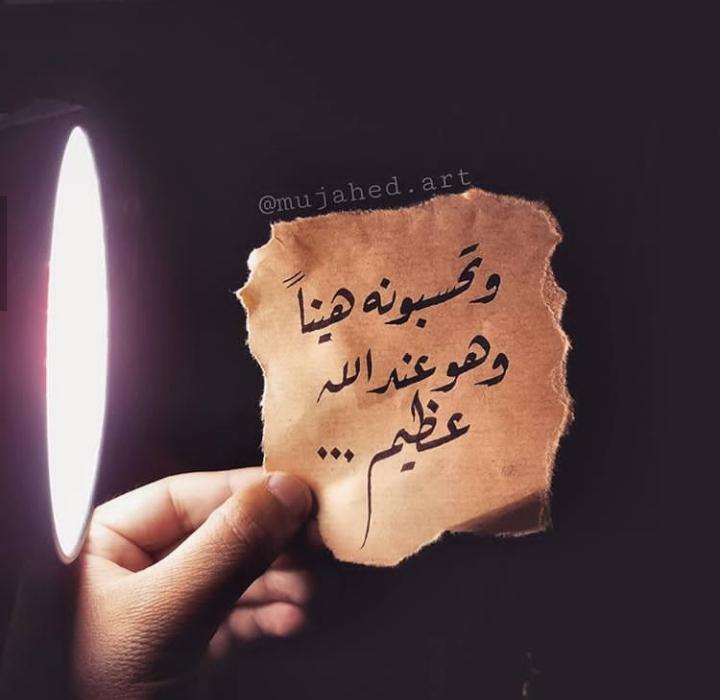 @mujahed.art
وتحسبونه هيناً
وهو عند الله
عظيم ...